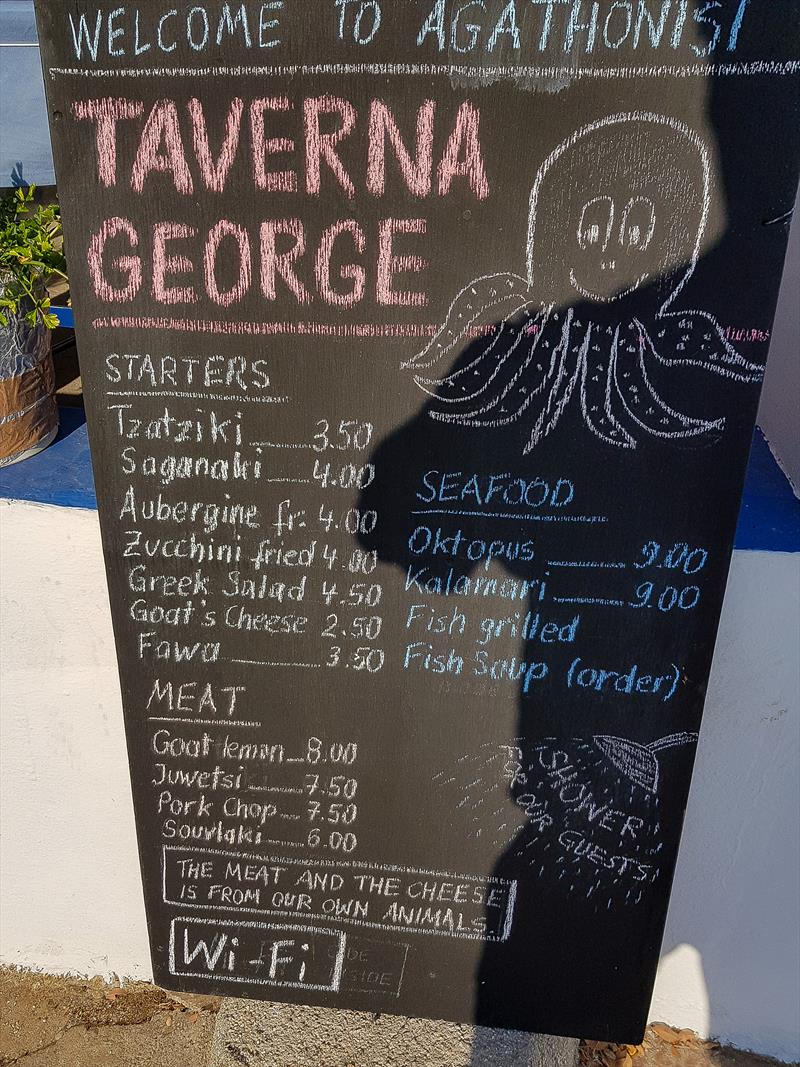 WELCOME TO AGATHONISI
TAVERNA
GEORGE
STARTERS
Tzatziki 3.50
Saganaki 4.00
Aubergine fr. 4.00
Zucchini fried 4.00
Greek Salad 4.50
Goat's Cheese 2.50
Fawa 3.50
SEAFOOD
Oktopus 9.00
Kalamari 9.00
Fish grilled
Fish Soup (order)
MEAT
Goat lemon 8.00
Juwetsi 7.50
Pork Chop 7.50
Souvlaki 6.00
SHOWER
OUR GUESTS
THE MEAT AND THE CHEESE
IS FROM OUR OWN ANIMALS.
Wi-Fi